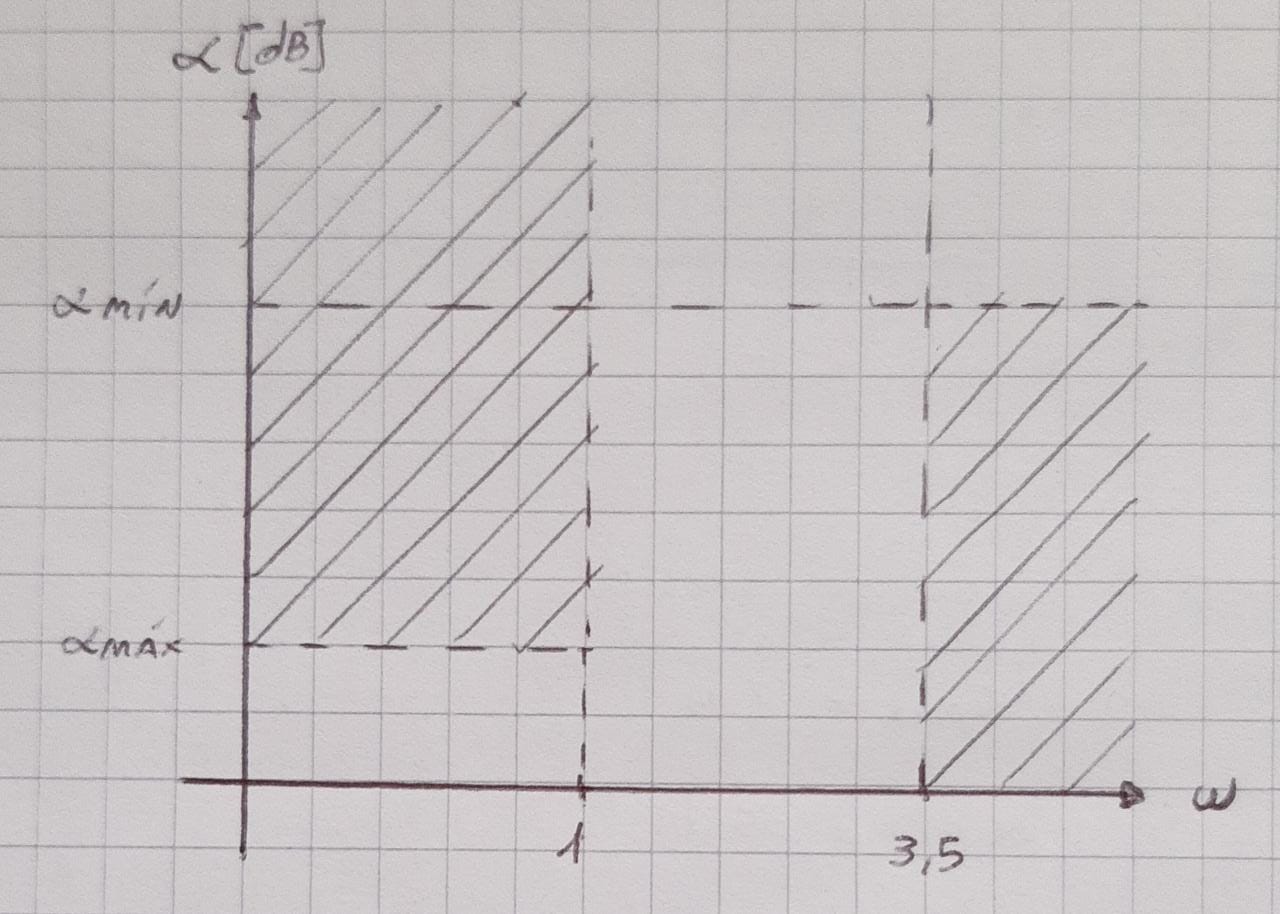 α [dB]
α mín
α máx
1
3,5
ω